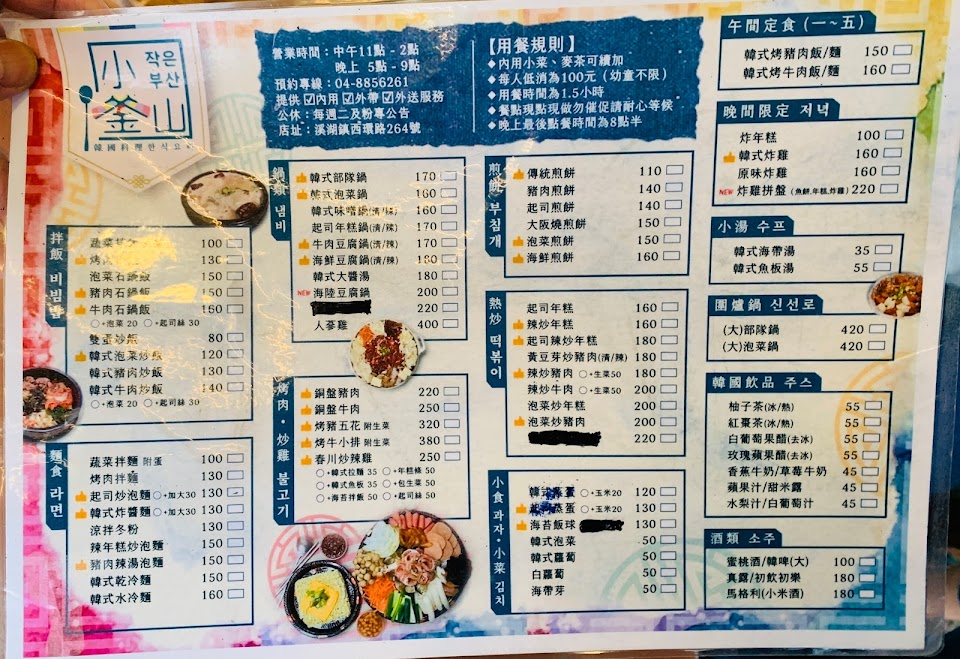 小釜山
작은
부산
韓國料理한식요리
營業時間：中午11點 - 2點
晚上 5點 - 9點
預約專線：04-8856261
提供 ☑內用 ☑外帶 ☑外送服務
公休：每週二及粉專公告
店址：溪湖鎮西環路264號
【用餐規則】
◆內用小菜、麥茶可續加
◆每人低消為100元（幼童不限）
◆用餐時間為1.5小時
◆餐點現點現做勿催促請耐心等候
◆晚上最後點餐時間為8點半
拌飯 비빔밥
蔬菜拌 100
130
泡菜石鍋飯 150
豬肉石鍋飯 150
牛肉石鍋飯 160
○+泡菜20 ○+起司絲30
雙蛋炒飯 80
韓式泡菜炒飯 120
韓式豬肉炒飯 130
韓式牛肉炒飯 140
○+泡菜20 ○+起司絲30
麵食 라면
蔬菜拌麵 附蛋 100
烤肉拌麵 130
起司炒泡麵 ○+加大30 130
韓式炸醬麵 ○+加大30 130
涼拌冬粉 130
辣年糕炒泡麵 150
豬肉辣湯泡麵 150
韓式乾冷麵 150
韓式水冷麵 160
鍋類 냄비
韓式部隊鍋 170
韓式泡菜鍋 160
韓式味噌鍋(清/辣) 160
起司年糕鍋(清/辣) 170
牛肉豆腐鍋(清/辣) 170
海鮮豆腐鍋(清/辣) 180
韓式大醬湯 180
NEW 海陸豆腐鍋 200
220
人蔘雞 400
烤肉・炒雞 불고기
銅盤豬肉 220
銅盤牛肉 250
烤豬五花 附生菜 320
烤牛小排 附生菜 380
春川炒辣雞 250
○+韓式拉麵 35 ○+年糕條 50
○+韓式魚板 35 ○+包生菜 50
○+海苔拌飯 50 ○+起司絲 50
煎餅 부침개
傳統煎餅 110
豬肉煎餅 140
起司煎餅 140
大阪燒煎餅 150
泡菜煎餅 150
海鮮煎餅 160
熱炒 떡볶이
起司年糕 160
辣炒年糕 160
起司辣炒年糕 180
黃豆芽炒豬肉(清/辣) 180
辣炒豬肉 ○+生菜50 180
辣炒牛肉 ○+生菜50 200
泡菜炒年糕 200
泡菜炒豬肉 200
220
小食 과자・小菜 김치
韓式蒸蛋 ○+玉米20 120
蒸蛋 ○+玉米20 130
海苔飯球 130
韓式泡菜 50
韓式蘿蔔 50
白蘿蔔 50
海帶芽 50
午間定食 (一~五)
韓式烤豬肉飯/麵 150
韓式烤牛肉飯/麵 160
晚間限定 저녁
炸年糕 100
韓式炸雞 160
原味炸雞 160
NEW 炸雞拼盤 (魚餅,年糕,炸雞) 220
小湯 수프
韓式海帶湯 35
韓式魚板湯 55
圍爐鍋 신선로
(大)部隊鍋 420
(大)泡菜鍋 420
韓國飲品 주스
柚子茶(冰/熱) 55
紅棗茶(冰/熱) 55
白葡萄果醋(去冰) 55
玫瑰蘋果醋(去冰) 55
香蕉牛奶/草莓牛奶 45
蘋果汁/甜米露 45
水梨汁/白葡萄汁 45
酒類 소주
蜜桃酒/韓啤(大) 100
真露/初飲初樂 180
馬格利(小米酒) 180